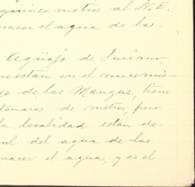 quince metros al N.E.
nacer el agua de las
Aguaje de Luciano
en el
de las Mangas, tiene
tenares de metros, pero
la localidad están de
del agua de las
nacer el agua, y es el